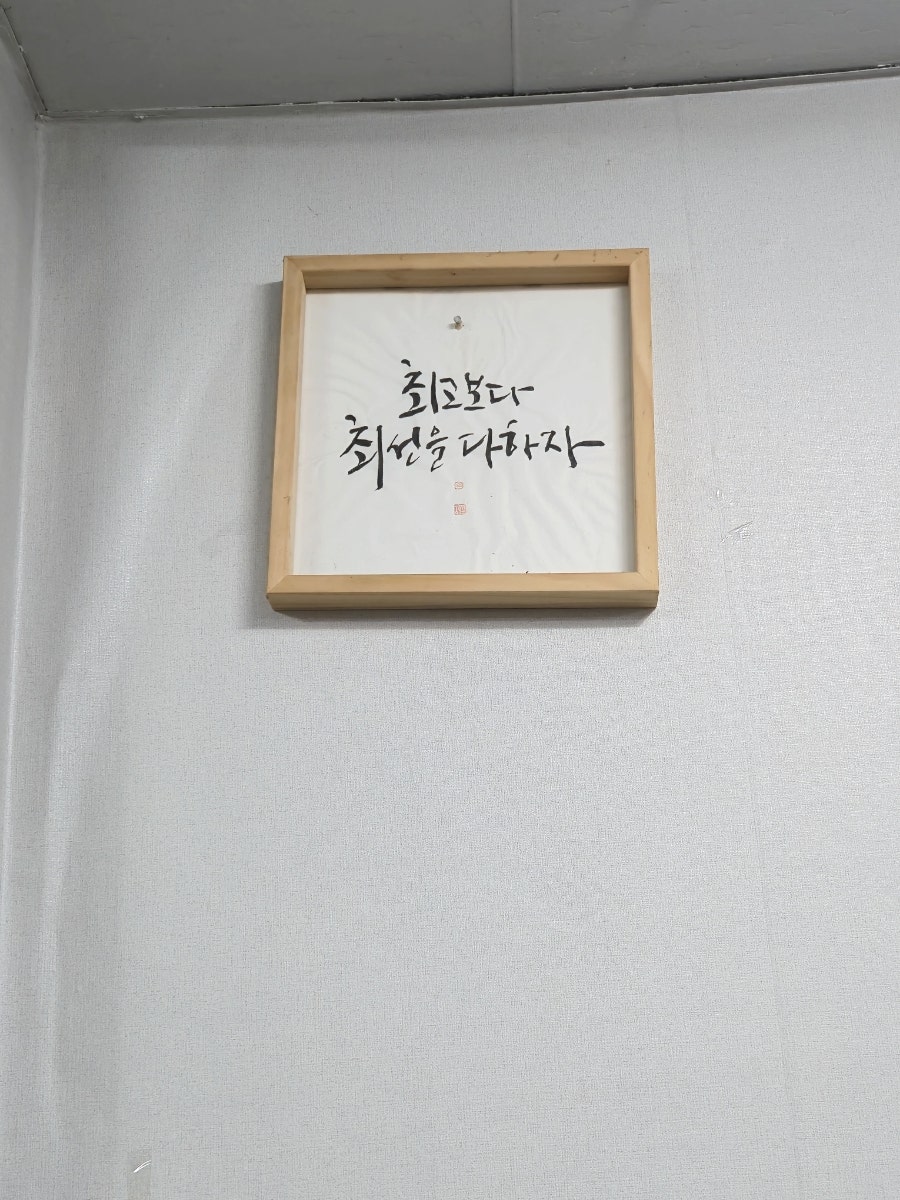 최고보다
최선을 다하자